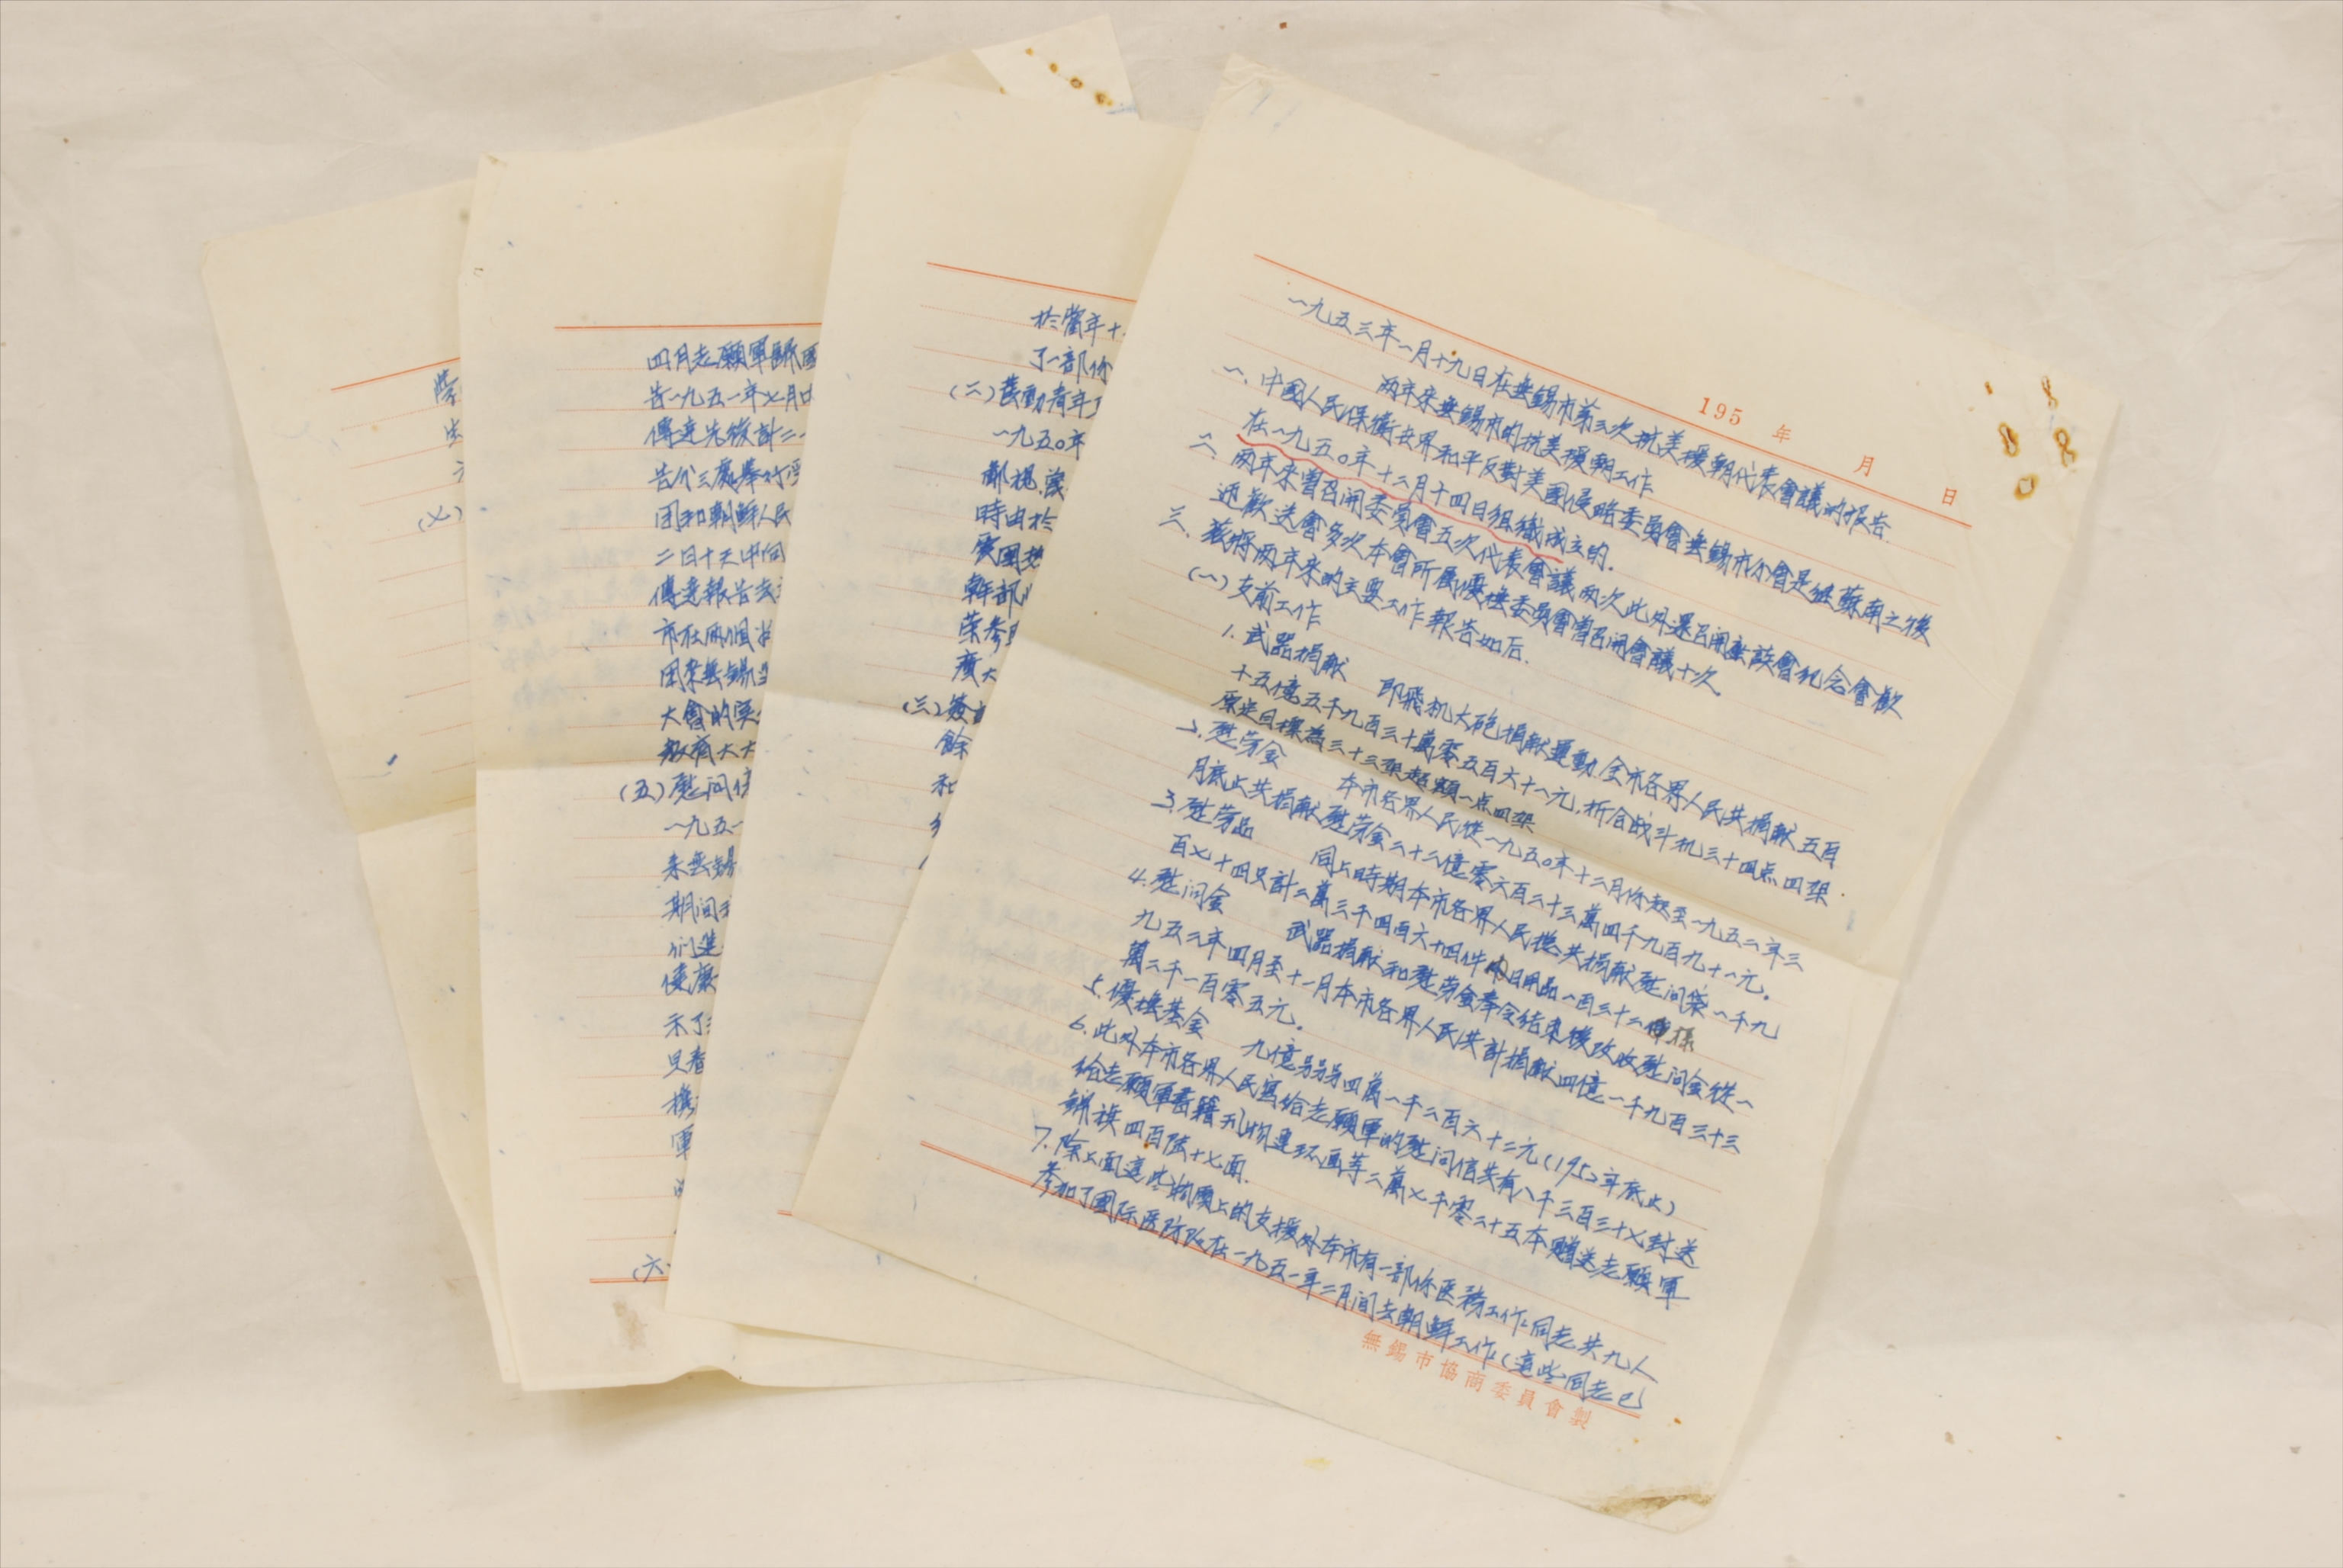 195 年 月 日
一九五三年一月十九日在無錫市第三次抗美援朝代表會議的报告.
兩年来無錫市的抗美援朝工作
一、中國人民保衛世界和平反對美國侵略委員會無錫市分會是繼蘇南之後
在一九五〇年十二月十四日組織成立的.
二、兩年来曾召開委員會五次代表會議兩次此外還召開座談會紀念會歡
迎歡送會多次本會所屬優撫委員會曾召開會議十次.
三、茲將兩年来的主要工作報告如后.
(一)支前工作
1. 武器捐献 即飛机大砲捐献運動全市各界人民共捐献五百
十五億五千九百三十萬零五百六十八元,折合战斗机三十四点四架.
原定目標為三十三架超額一点四架
2. 慰劳金 本市各界人民從一九五〇年十二月份起至一九五二年三
月底止共捐献慰劳金二十二億零六百二十三萬四千九百九十八元.
3. 慰劳品 同上時期本市各界人民撚共捐献慰问袋一千九
百七十四只計二萬三千四百六十四件日用品一百三十二樣
4. 慰问金 武器捐献和慰劳金奉令结束後改收慰问金從一
九五二年四月至十一月本市各界人民共計捐献四億一千九百三十三
萬二千一百零五元.
5. 優撫基金 九億另四萬一千二百六十二元(1952年底止)
6. 此外本市各界人民寫给志願軍的慰问信共有八千三百三十七封送
给志願軍書籍刊物連环画等二萬七千零二十五本贈送志願軍
錦旗四百陆十七面.
7. 除上面這些物質上的支援外本市有一部份医務工作同志共九人
参加了國际医防队在一九五一年二月间去朝鮮工作(這些同志已
無錫市協商委員會製
於當年十
了一部份
(二)
一九五〇年
時由於
愛國
幹部
廣大
(三)
餘
和
四月志願軍歸國
告一九五一年七月
傳達先後計二
告分三處舉行
团和朝鮮人民
二日十天中向
傳達報告
市在兩個
团来無錫
大會的
教育大
(五)慰问
一九五一
来無錫
期间
们進
健康
示了
軍
(六
(七)